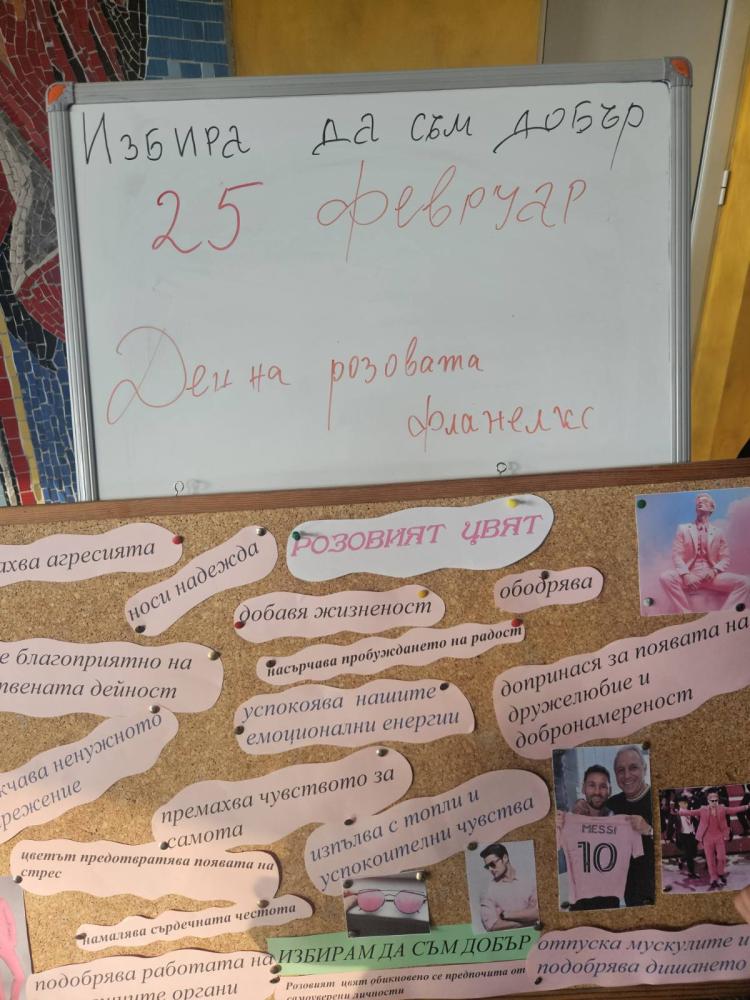 ИЗБИРА ДА СЪМ ДОБЪР
25 февруар
Ден на розовата
фланелкс
РОЗОВИЯТ ЦВЯТ
ахва агресията
носи надежда
добавя жизненост
ободрява
насърчава пробуждането на радост
е благоприятно на
твената дейност
успокоява нашите
емоционални енергии
допринася за появата на
дружелюбие и
добронамереност
кчава ненужното
режение
премахва чувството за
самота
изпълва с топли и
успокоителни чувства
MESSI
10
цветът предотвратява появата на
стрес
намалява сърдечната честота
ИЗБИРАМ ДА СЪМ ДОБЪР
отпуска мускулите и
подобрява дишането
подобрява работата на
шните органи
Розовият цвят обикновено се предпочита от
самоуверени личности